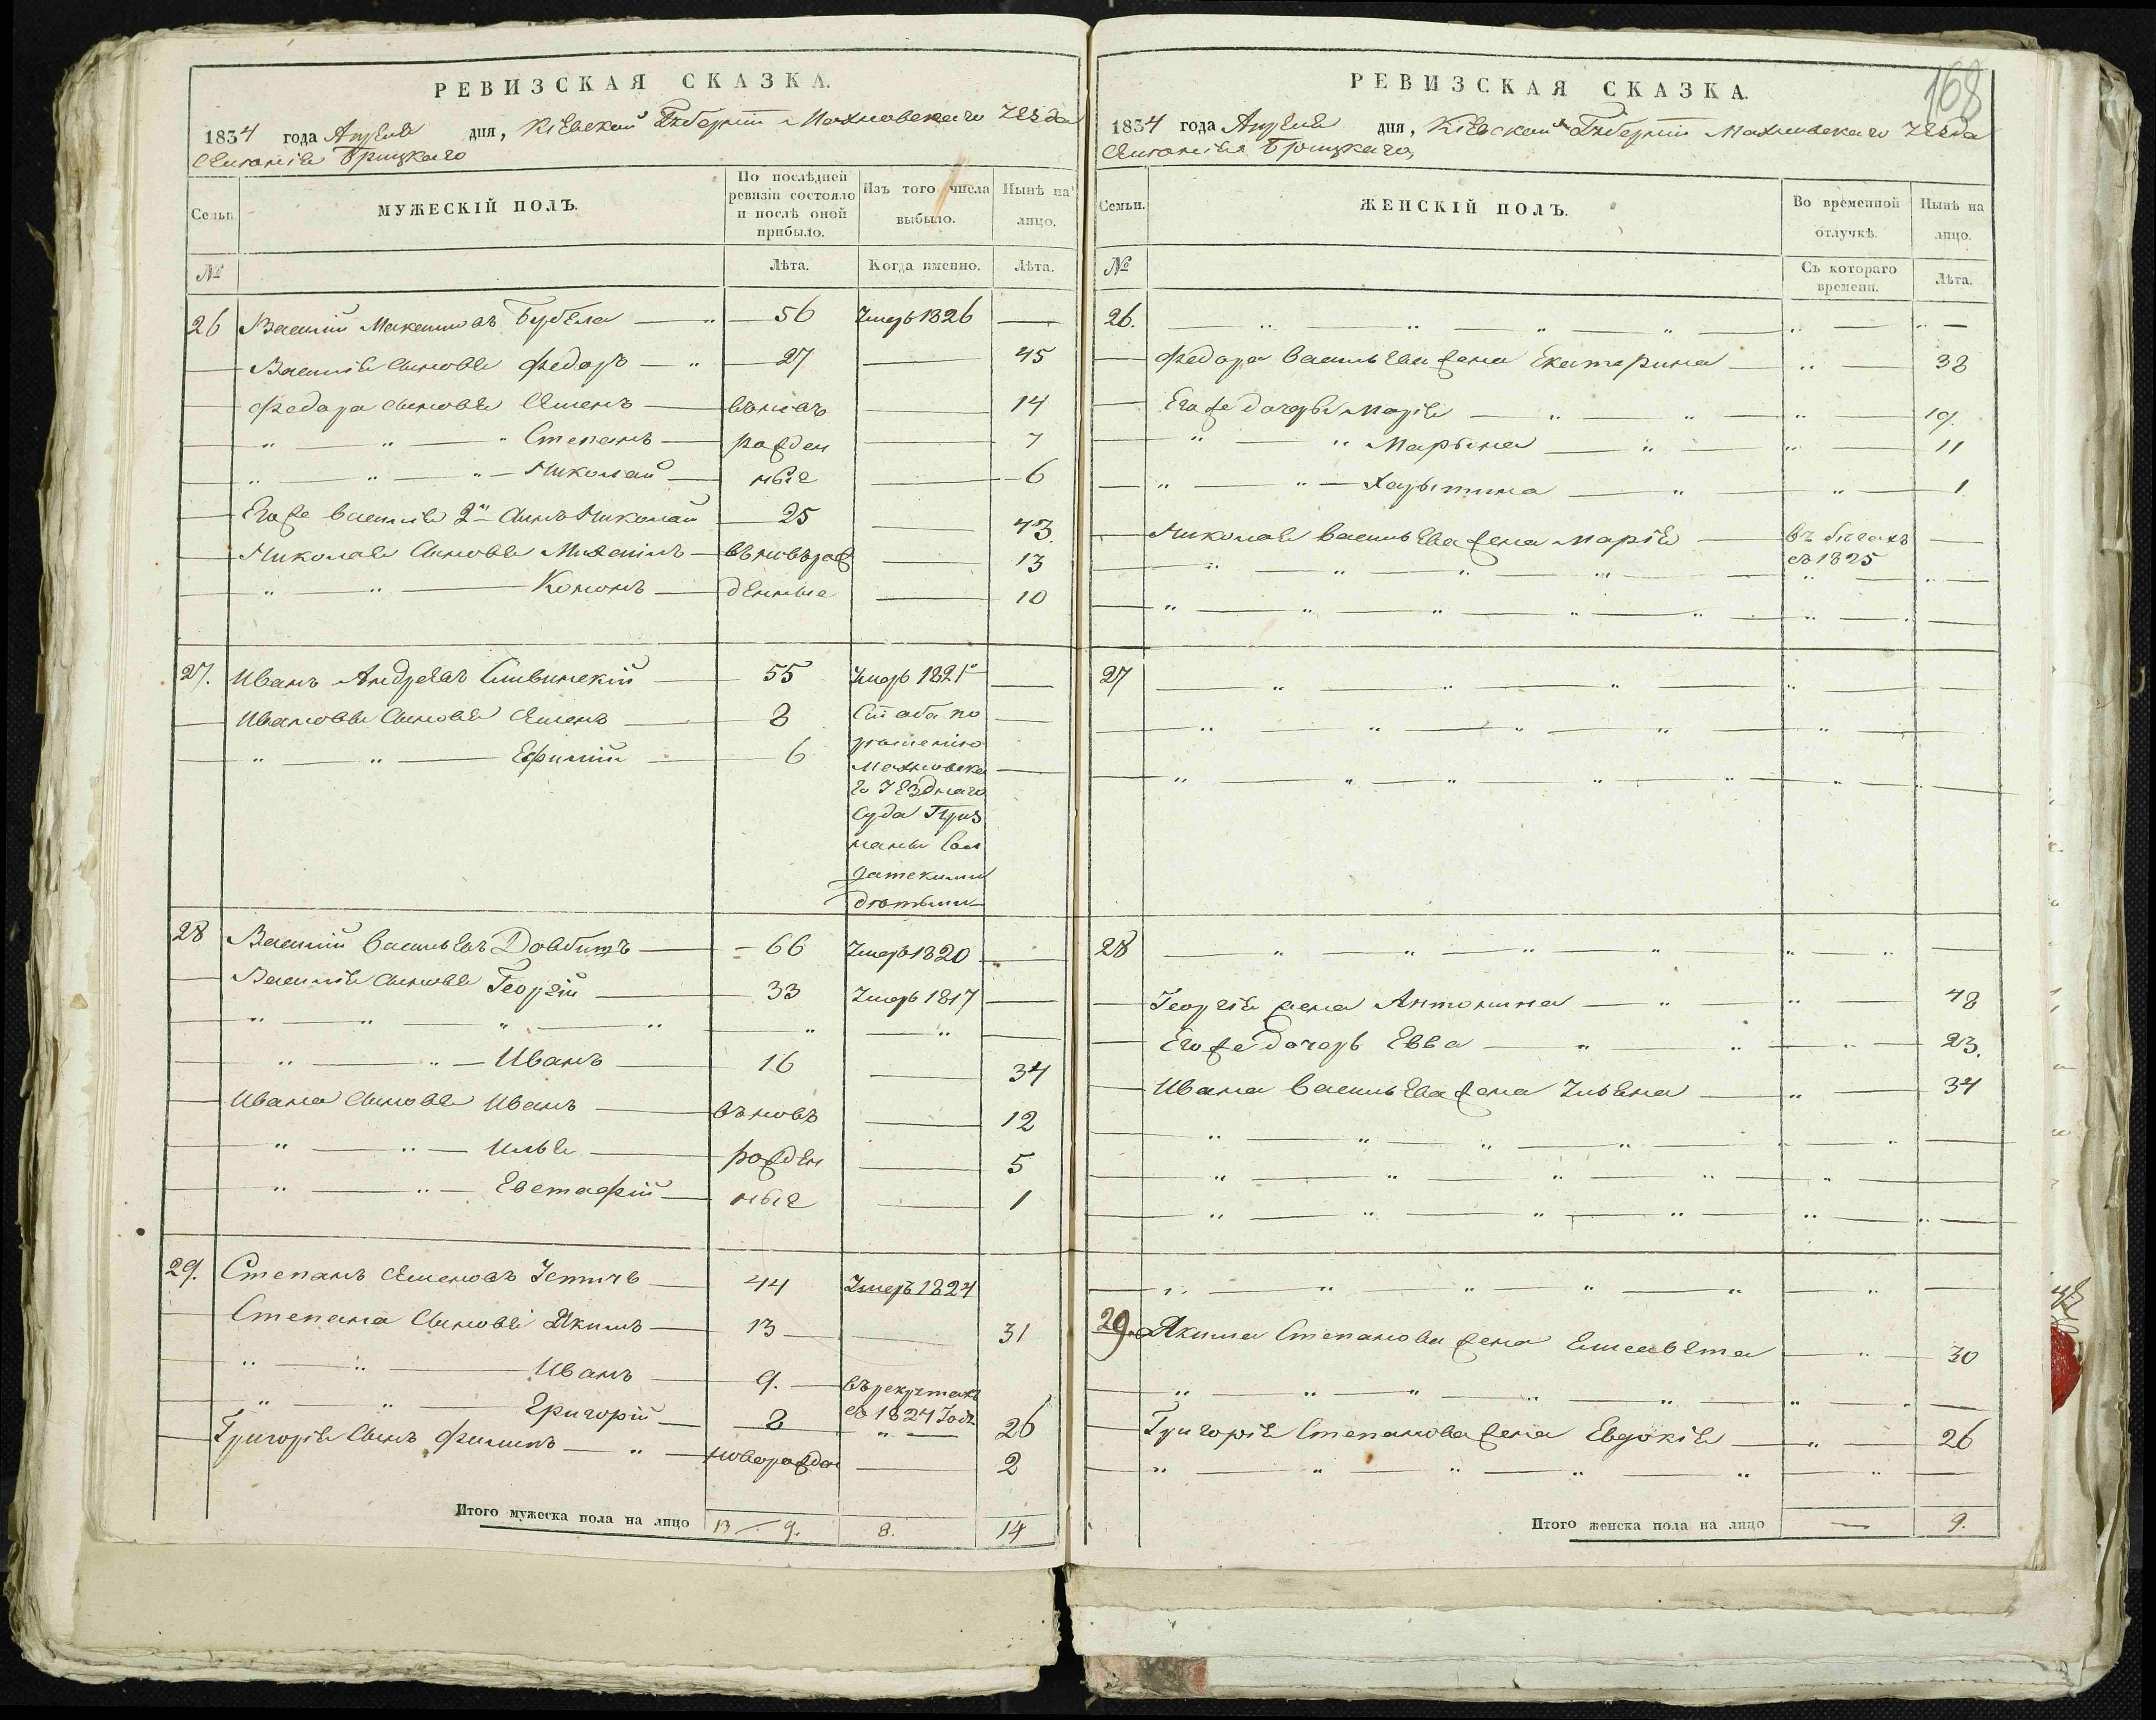 РЕВИЗСКАЯ СКАЗКА.
1834 года Апреля дня, Кіевской Губерніи Махновскаго Уезда
Брицкаго
Семьи
МУЖЕСКІЙ ПОЛЪ.
По послѣдней ревизіи состояло и послѣ оной прибыло.
Изъ того числа выбыло.
Нынѣ на лицо.
№
Лѣта.
Когда именно.
Лѣта.
26 Василій Максимовъ Бубела 56 Умеръ 1826 —
Василія Сыновья Федоръ 27 — 45
Федора сыновья Семенъ въновъ — 14
" " " Степанъ рожден — 7
" " " Николай ные — 6
Его же Василія 2й Сынъ Николай 25 — 43.
Николая Сыновья Михаилъ въновърож — 13
" " Кононъ денные — 10
27. Иванъ Андреевъ Сливинскій 55 Умеръ 1821 —
Ивановы Сыновья Семенъ 8 Сіи оба по —
" " Ефимій 6 решенію
Махновска —
го Уезднаго
Суда Приз
наны
28 Василій Васильевъ Довбишъ 66 Умеръ 1820 —
Василія Сыновья Георгій 33 Умеръ 1817 —
" " " " " " —
" " Иванъ 16 — 34
Ивана Сыновья Иванъ вновь — 12
" " Илья рожден — 5
" " Евстафій ные — 1
29. Степанъ Семеновъ 44 Умеръ 1824
Степана Сыновья Якимъ 13 — 31
" " Иванъ 9. въ рекрутах
" " Григорій 8 съ 1827 года 26
Григорія Сынъ Филипъ " новорожден — 2
Итого мужеска пола на лицо 13 / 9. 8. 14
168
РЕВИЗСКАЯ СКАЗКА.
1834 года Апреля дня, Кіевской Губерніи Махновскаго Уезда
Брицкаго,
Семьи.
ЖЕНСКІЙ ПОЛЪ.
Во временной отлучкѣ.
Нынѣ на лицо.
№
Съ котораго времени.
Лѣта.
26. — " — " — " — " — " — " —
Федора Васильева жена Екатерина " — 38
Его же дочери Марія — " — " — " — 19.
" — " Марьяна — " — " — 11
" — " — Харытина — " — " — 1
Николая Васильева жена Марія — въ бегахъ —
съ 1825
" — " — " — " — " — " —
" — " — " — " — " — " —
27 — " — " — " — " — " —
" — " — " — " — " —
" — " — " — " — " — " —
28 — " — " — " — " — " — " —
Георгія жена Антонина — " — " — 48
Его же дочерь Евва — " — " — " — 23.
Ивана Васильева жена Ульяна — " — 34
" — " — " — " — " — " —
" — " — " — " — " —
" — " — " — " — " — " —
" — " — " — " — " — " —
29. Якима Степанова жена Елисавета — " — 30
" — " — " — " — " — " —
Григорія Степанова жена Евдокія — " — 26
" — " — " — " — " — " —
Итого женска пола на лицо — 9.